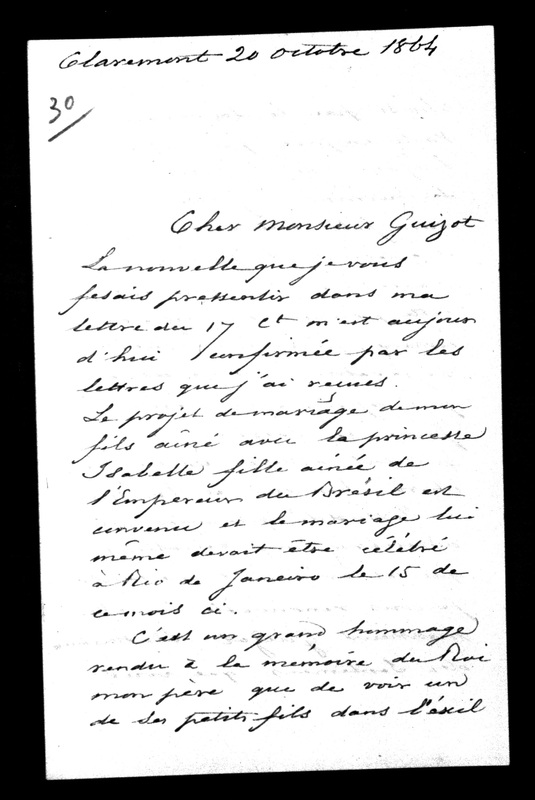 Claremont 20 Octobre 1864
30
Cher Monsieur Guizot
La nouvelle que je vous
fesais pressentir dans ma
lettre du 17 Ct m'est aujour
d'hui confirmée par les
lettres que j'ai reçues.
Le projet de mariage de mon
fils aîné avec la princesse
Isabelle fille ainée de
l'Empereur du Brésil est
convenu et le mariage lui
même devait être célébré
à Rio de Janeiro le 15 de
ce mois ci.
C'est un grand hommage
rendu à la mémoire du Roi
mon père que de voir un
de ses petits fils dans l'éxil